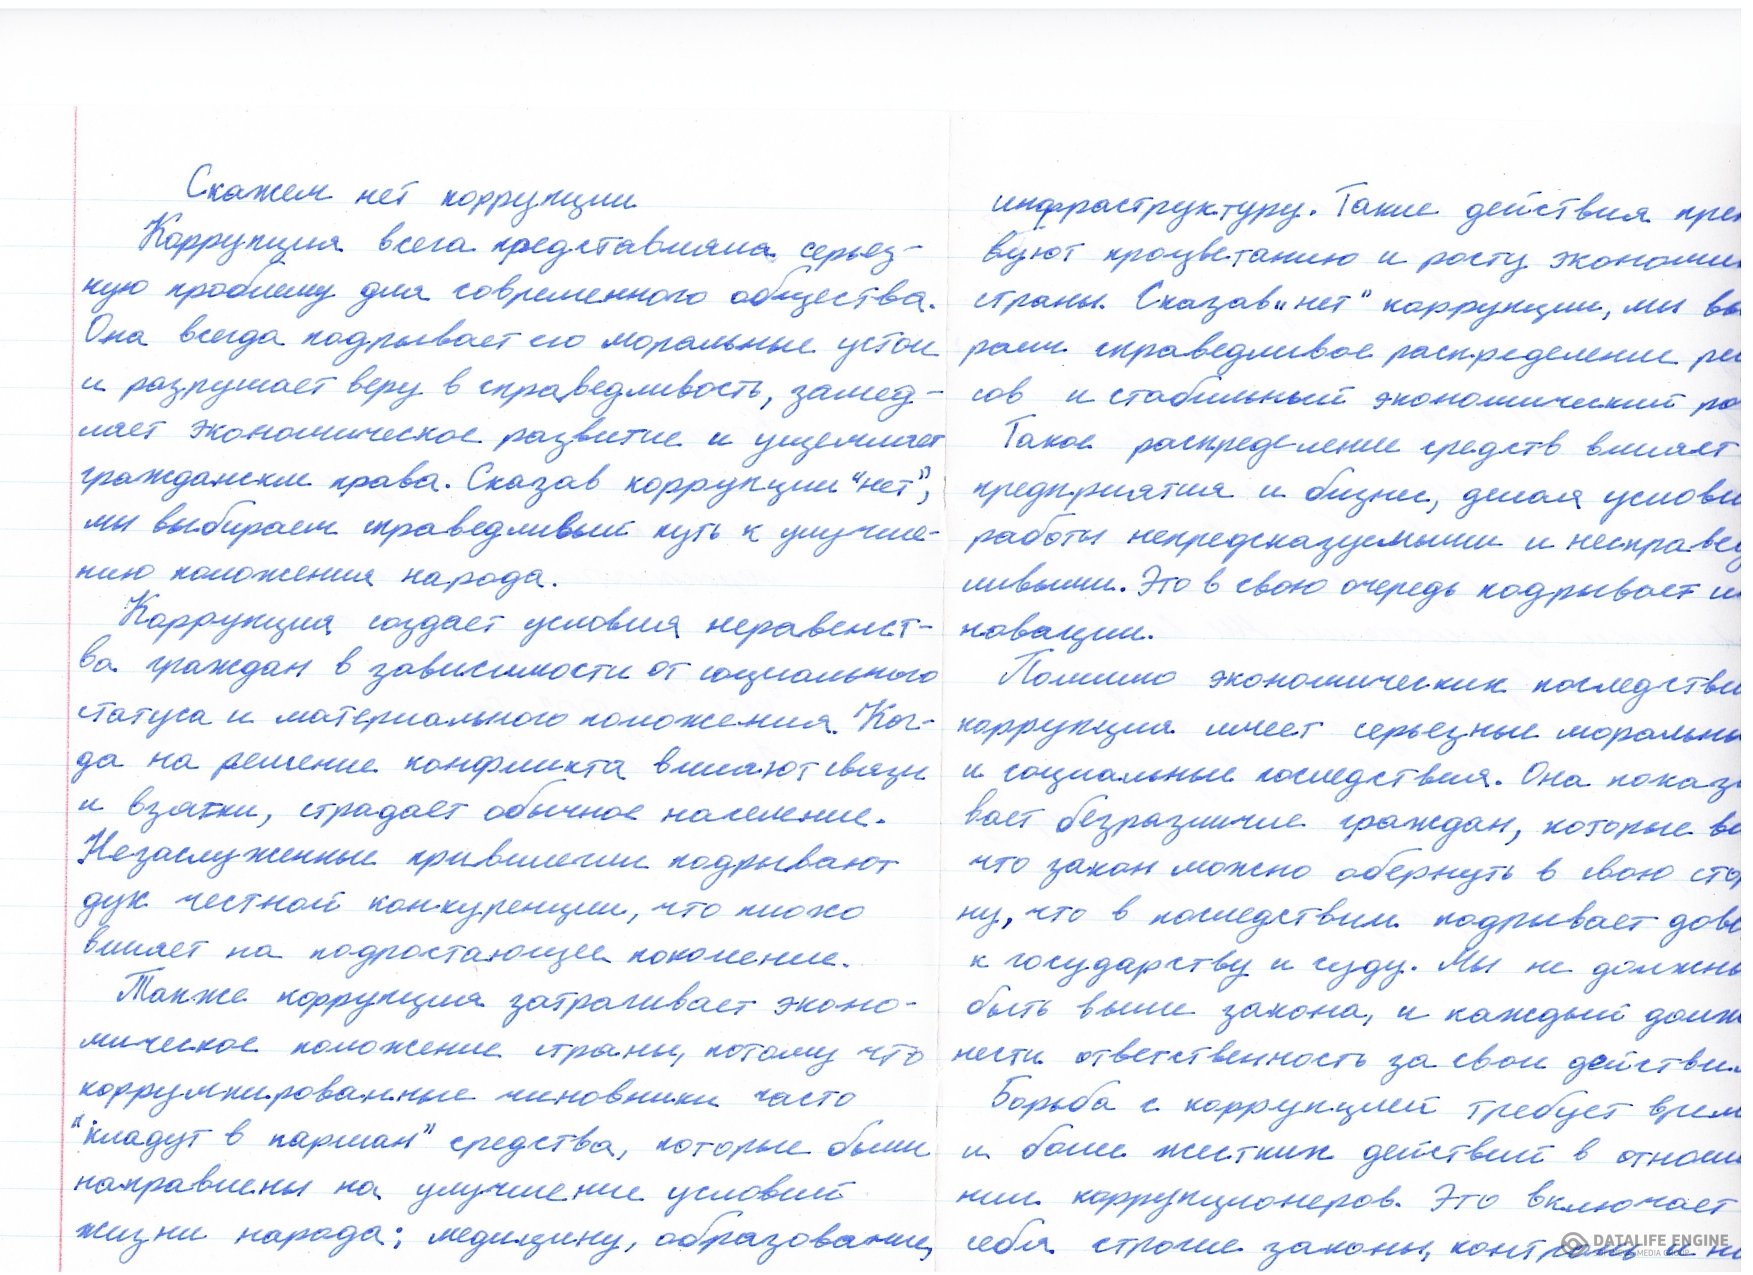 Скажем нет коррупции
Коррупция всега представляла серьез-
ную проблему для современного общества.
Она всегда подрывает его моральные устои
и разрушает веру в справедливость, замед-
ляет экономическое развитие и ущемляет
граждански права. Сказав коррупции "нет",
мы выбираем справедливый путь к улучше-
нию положения народа.
Коррупция создает условия неравенст-
ва граждан в зависимости от социального
статуса и материального положения. Ког-
да на решение конфликта влияют связи
и взятки, страдает обычное население.
Незаслуженные привилегии подрывают
дух честной конкуренции, что плохо
влияет на подростающее поколение.
Также коррупция затрагивает эконо-
мическое положение страны, потому что
коррумпированные чиновники часто
"кладут в карман" средства, которые были
направлены на улучшение условий
жизни народа; медицину, образование,
инфраструктуру. Такие действия преп
вуют процветанию и росту экономи
страны. Сказав „нет" коррупции, мы вы
раем справедливое распределение ре
сов и стабильный экономический ро
Такое распределение средств влияет
предприятия и бизнес, делая услови
работы непредсказуемыми и несправед
ливыми. Это в свою очередь подрывает и
новации.
Помимо экономических последстви
коррупция имеет серьезные моральны
и социальные последствия. Она показы
вает безразличие граждан, которые ве
что закон можно обернуть в свою сто
ну, что в последствии подрывает дове
к государству и суду. Мы не должны
быть выше закона, и каждый долж
нести ответственность за свои действи
Борьба с коррупцией требует врем
и более жестких действий в отноше
нии коррупционеров. Это включает
себя строгие законы, контроль и не
DATALIFE ENGINE
MEDIA GROUP